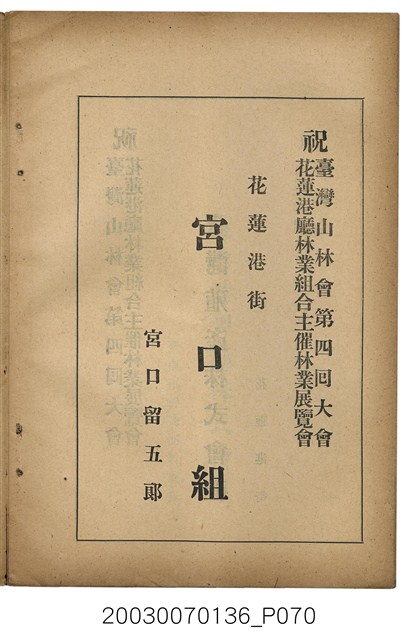 祝
臺灣山林會第四回大會
花蓮港廳林業組合主催林業展覽會
花蓮港街
宮口組
宮口留五郎
20030070136_P070